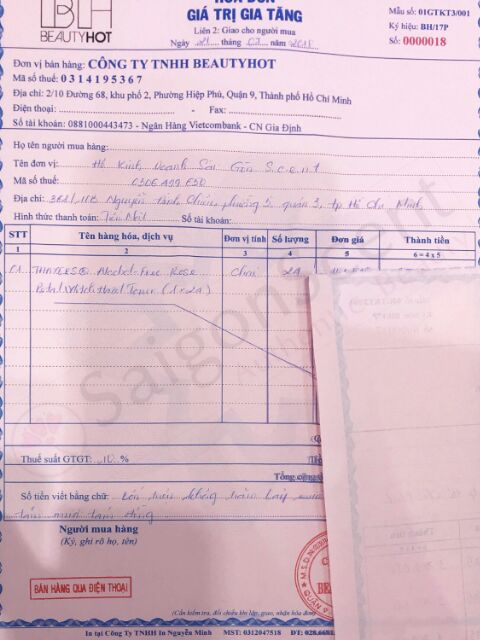 BH
BEAUTYHOT
HÓA ĐƠN
GIÁ TRỊ GIA TĂNG
Liên 2: Giao cho người mua
Ngày tháng năm 2018
Mẫu số: 01GTKT3/001
Ký hiệu: BH/17P
Số: 0000018
Đơn vị bán hàng: CÔNG TY TNHH BEAUTYHOT
Mã số thuế: 0314195367
Địa chỉ: 2/10 Đường 68, khu phố 2, Phường Hiệp Phú, Quận 9, Thành phố Hồ Chí Minh
Điện thoại: - Fax:
Số tài khoản: 0881000443473 - Ngân Hàng Vietcombank - CN Gia Định
Họ tên người mua hàng:
Tên đơn vị: Hộ Kinh Doanh Sài Gòn Scent
Mã số thuế:
Địa chỉ: Nguyễn phường 5, quận 3, tp Hồ Chí Minh
Hình thức thanh toán: Tiền Mặt Số tài khoản:
STT Tên hàng hóa, dịch vụ Đơn vị tính Số lượng Đơn giá Thành tiền
1 2 3 4 5 6 = 4 x 5
01 THAYERS® Alcohol-Free Rose Chai 24
Petal Witch Hazel Toner
SaigonScent
Authentic
Thuế suất GTGT: 10 %
Tổng cộng
Số tiền viết bằng chữ: không trăm hai mươi
tám đồng
Người mua hàng
(Ký, ghi rõ họ, tên)
BÁN HÀNG QUA ĐIỆN THOẠI
(Cần kiểm tra, đối chiếu khi lập, giao, nhận hóa đơn)
In tại Công Ty TNHH In Nguyễn Minh MST: 0312047518 ĐT: 028.668